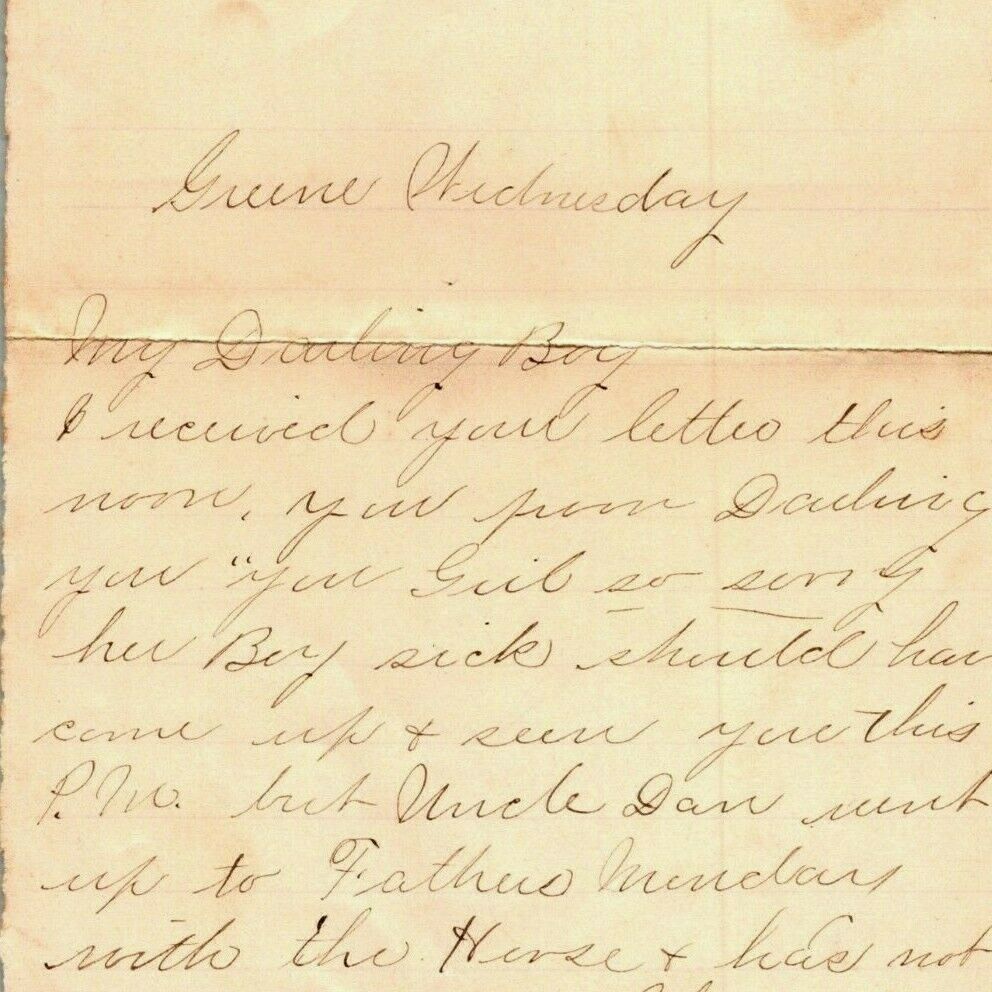 Greene Wednesday
My Darling Boy
I received your letter this
noon, you poor Darling
you "your Girl so sorry
her Boy sick should hav
come up & seen you this
P.M. but Uncle Dan went
up to Fathers Monday
with the Horse & has not